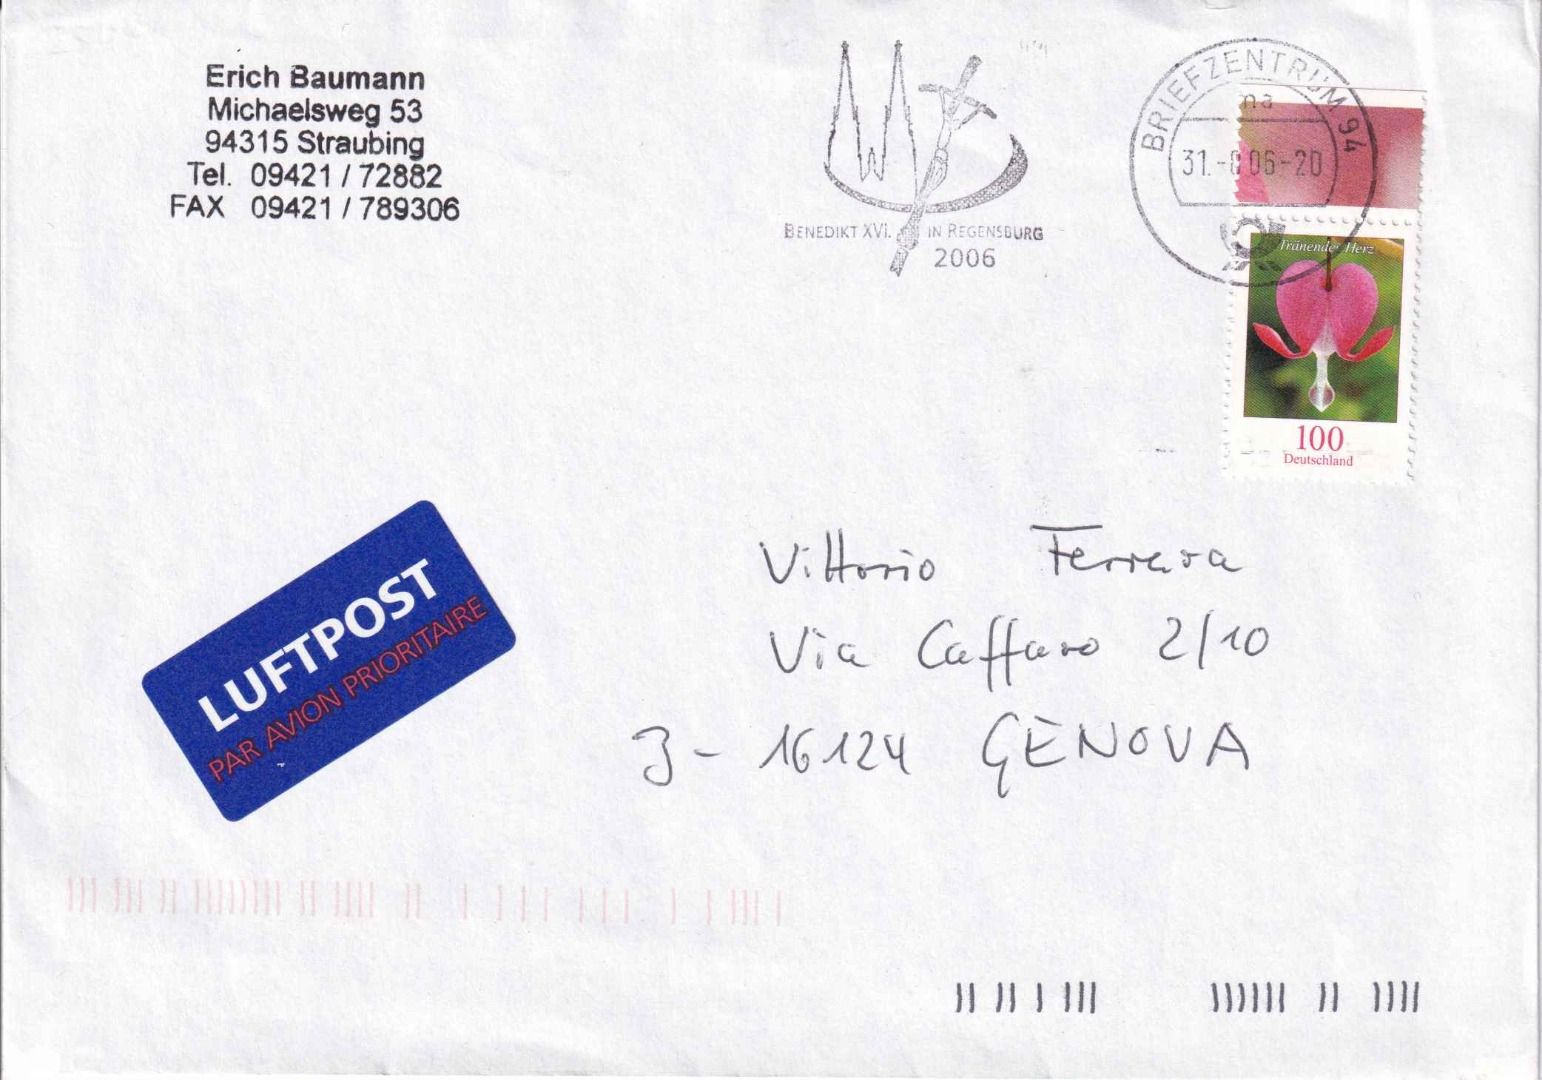 Erich Baumann
Michaelsweg 53
94315 Straubing
Tel. 09421 / 72882
FAX 09421 / 789306
BENEDIKT XVI. IN REGENSBURG
2006
BRIEFZENTRUM 94
na
31.- 06-20
Tränendes Herz
100
Deutschland
LUFTPOST
PAR AVION PRIORITAIRE
Vittorio Ferrara
Via Caffaro 2/10
I - 16124 GENOVA